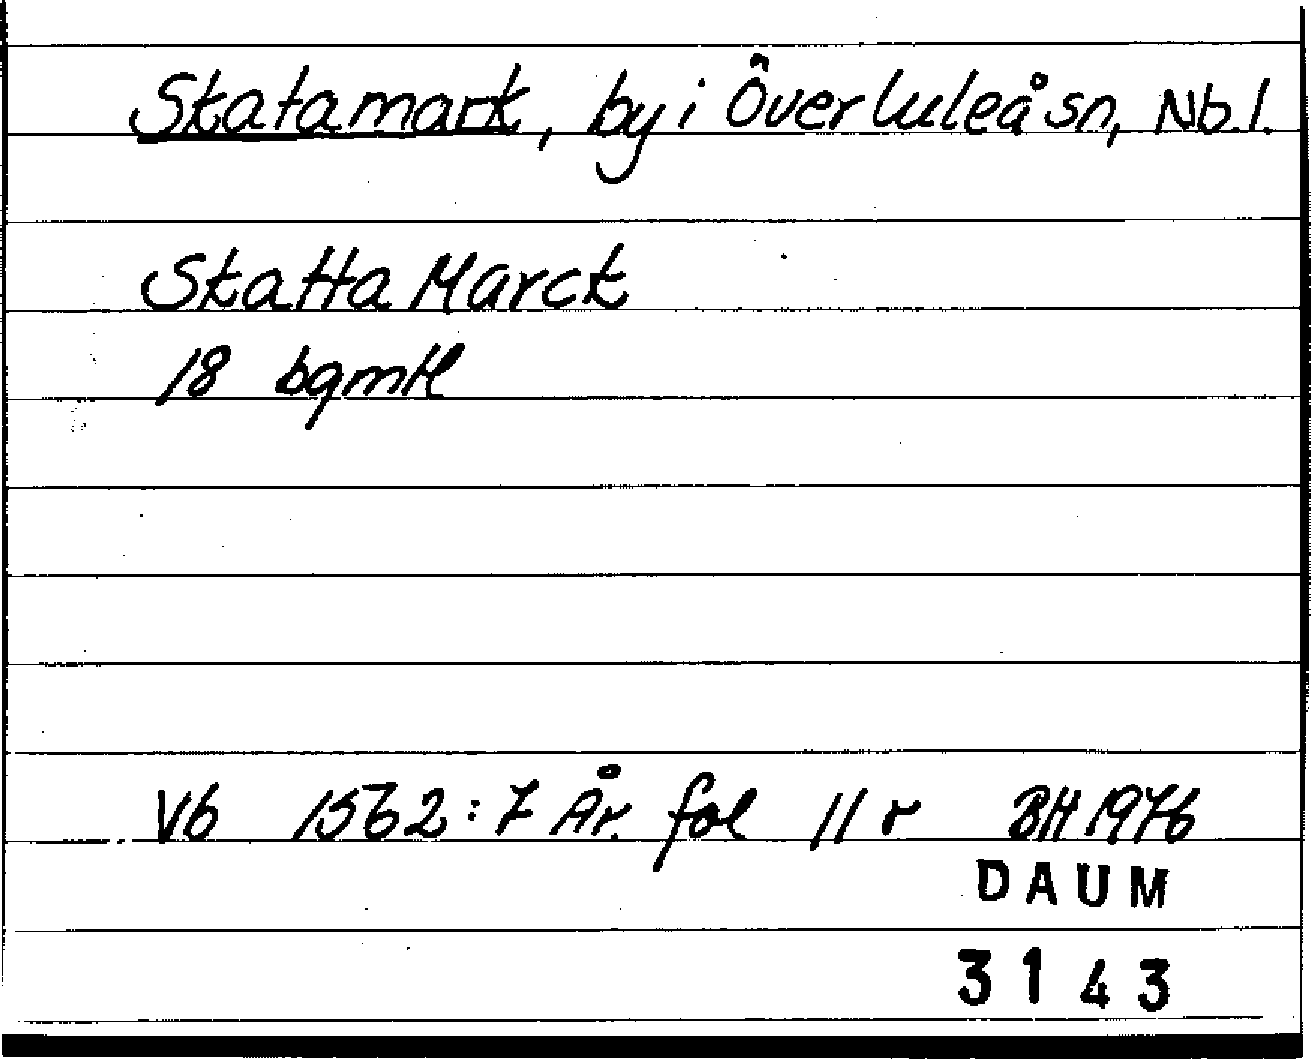 Skatamark, by i Överluleå sn, Nb.l.
Skatta Marck
18 bgmtl
Vb 1562:7 År. fol 11 r BH 1976
DAUM
3143